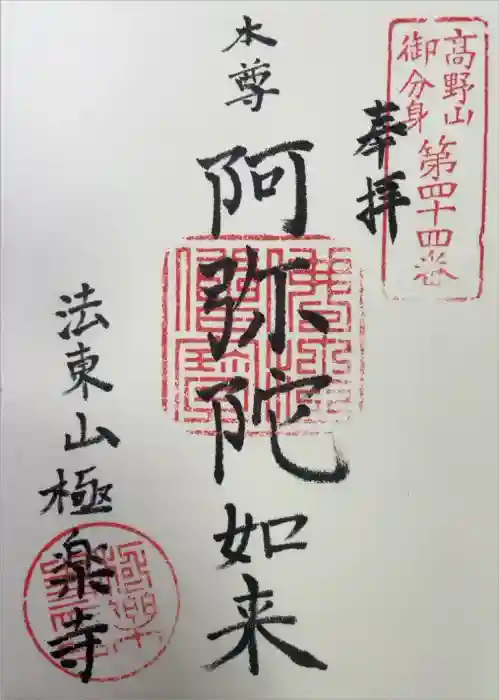 高野山
御分身
第四十四巻
奉拝
本尊
阿弥陀如来
法東山極楽寺